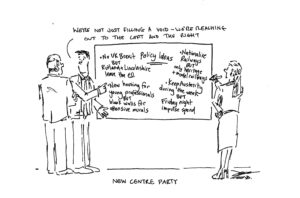 WE'RE NOT JUST FILLING A VOID - WE'RE REACHING
OUT TO THE LEFT AND THE RIGHT
Policy Ideas
• No UK Brexit
BUT
Rutland + Lincolnshire
leave the EU
• New housing for
young professionals
BUT
blank walls for
offensive murals
• Nationalise
Railways
BUT
only heritage
+ model railways
• Keep Austerity
during the week
BUT
Friday night
impulse spend
NEW CENTRE PARTY